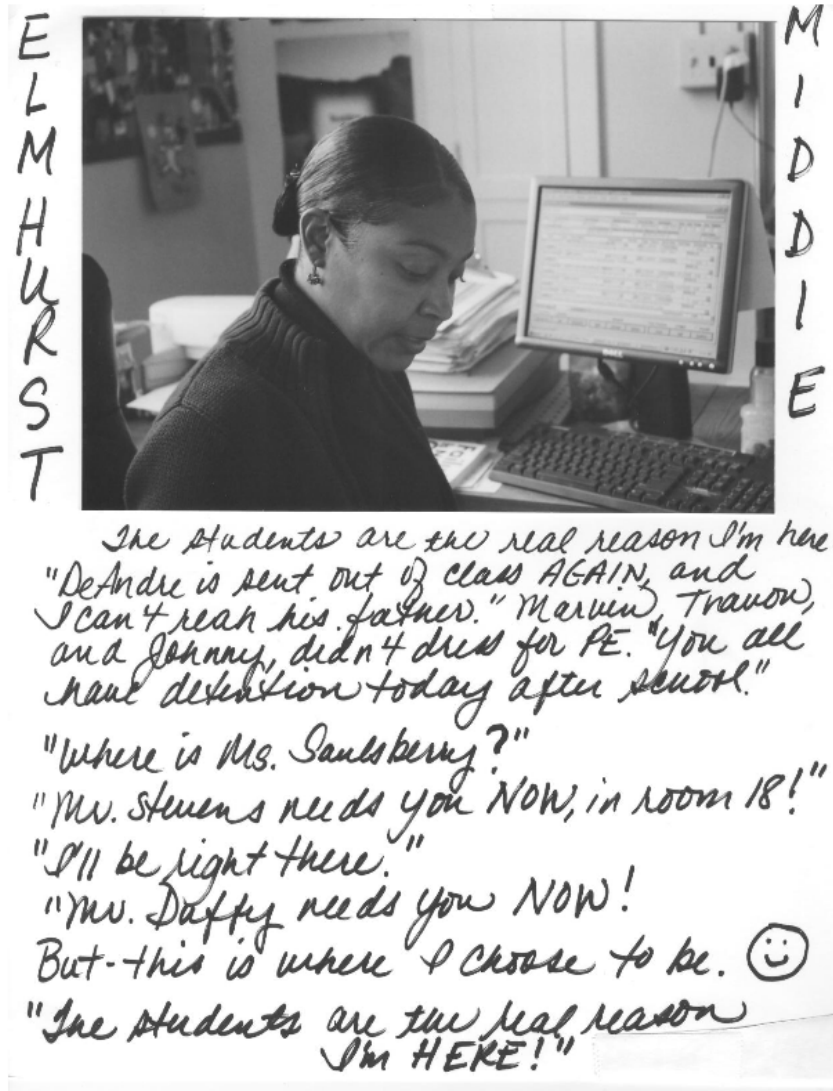 ELMHURST
MIDDIE
The students are the real reason I'm here
"DeAndre is sent out of class AGAIN, and
I can't reah his father." Marvin, Travon,
and Johnny, didn't dress for PE. "You all
have detention today after school."
"Where is Ms. Saulsberry?"
"Mr. Stevens needs you NOW, in room 18!"
"I'll be right there."
"Mr. Duffy needs you NOW!
But - this is where I choose to be. ☺
"The students are the real reason
I'm HERE!"
DELL